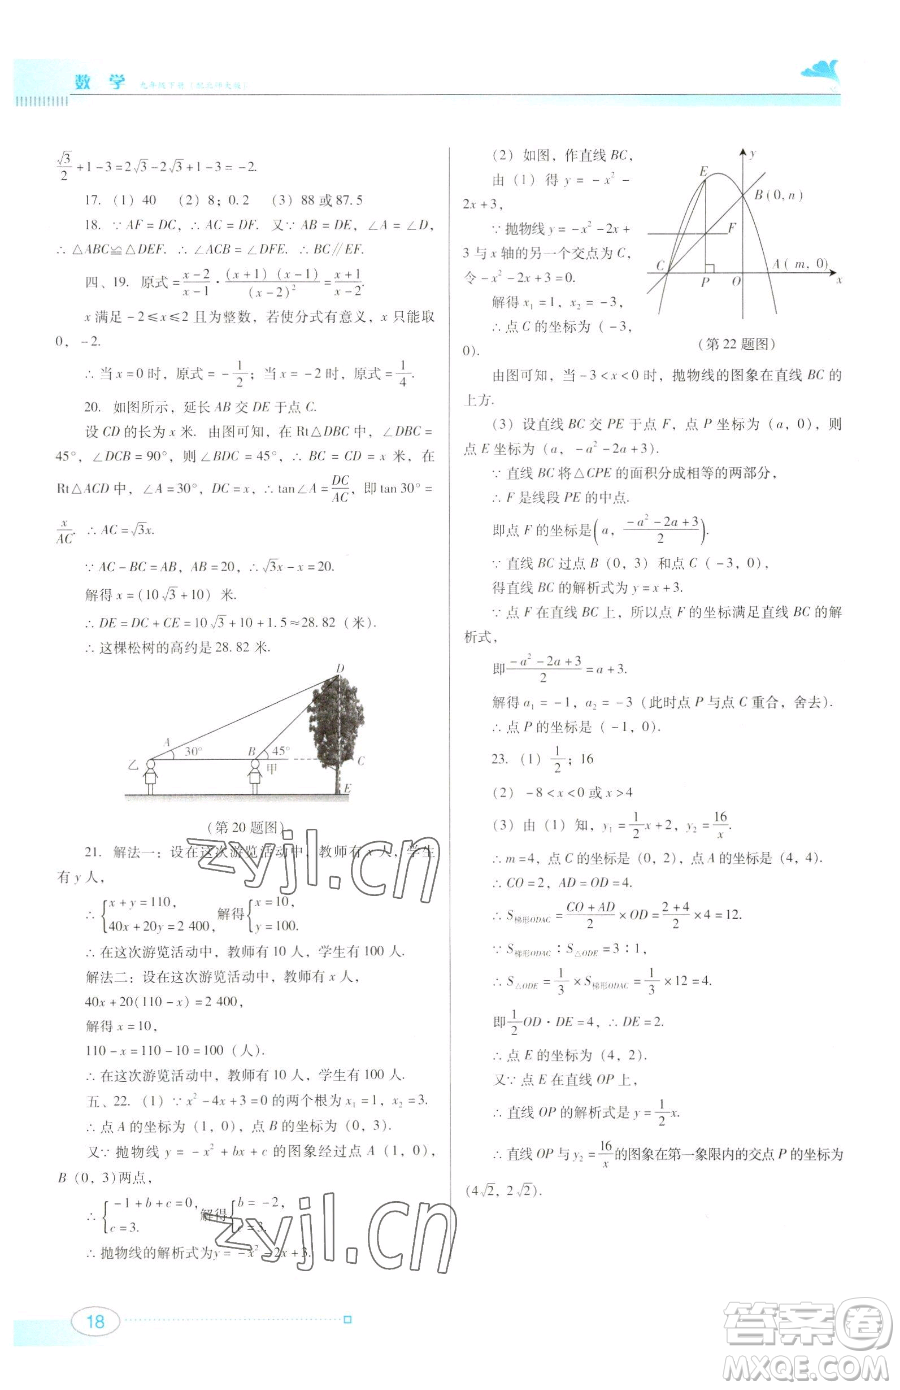 数 学 九年级下册（配北师大版）
√3/2+1-3=2√3-2√3+1-3=-2.
17. （1）40 （2）8；0.2 （3）88 或 87.5
18. ∵AF=DC，∴AC=DF. 又∵AB=DE，∠A=∠D，
∴△ABC≌△DEF. ∴∠ACB=∠DFE. ∴BC∥EF.
四、19. 原式=(x-2)/(x-1)·(x+1)(x-1)/(x-2)²=(x+1)/(x-2).
x 满足-2≤x≤2 且为整数，若使分式有意义，x 只能取
0，-2.
∴当 x=0 时，原式=-1/2；当 x=-2 时，原式=1/4.
20. 如图所示，延长 AB 交 DE 于点 C.
设 CD 的长为 x 米. 由图可知，在 Rt△DBC 中，∠DBC=
45°，∠DCB=90°，则∠BDC=45°，∴BC=CD=x 米. 在
Rt△ACD 中，∠A=30°，DC=x，∴tan∠A=DC/AC，即 tan30°=
x/AC. ∴AC=√3x.
∵AC-BC=AB，AB=20，∴√3x-x=20.
解得 x=(10√3+10）米.
∴DE=DC+CE=10√3+10+1.5≈28.82（米）.
∴这棵松树的高约是 28.82 米.
D
A 30° B 45° C
乙 甲
E
（第 20 题图）
21. 解法一：设在这次游览活动中，教师有 x 人，学生
有 y 人，
∴{x+y=110，40x+20y=2 400，解得{x=10，y=100.
∴在这次游览活动中，教师有 10 人，学生有 100 人.
解法二：设在这次游览活动中，教师有 x 人，
40x+20(110-x)=2 400，
解得 x=10，
110-x=110-10=100（人）.
∴在这次游览活动中，教师有 10 人，学生有 100 人.
五、22. （1）∵x²-4x+3=0 的两个根为 x₁=1，x₂=3.
∴点 A 的坐标为（1，0），点 B 的坐标为（0，3）.
又∵抛物线 y=-x²+bx+c 的图象经过点 A（1，0），
B（0，3）两点，
∴{-1+b+c=0，c=3.解得{b=-2，c=3.
∴抛物线的解析式为 y=-x²-2x+3.
（2）如图，作直线 BC，
由（1）得 y=-x²-
2x+3，
∵抛物线 y=-x²-2x+
3 与 x 轴的另一个交点为 C，
令-x²-2x+3=0.
解得 x₁=1，x₂=-3，
∴点 C 的坐标为（-3，
0）.
y
E
B(0,n)
F
C P O A(m,0) x
（第 22 题图）
由图可知，当-3<x<0 时，抛物线的图象在直线 BC 的
上方.
（3）设直线 BC 交 PE 于点 F，点 P 坐标为（a，0），则
点 E 坐标为（a，-a²-2a+3）.
∵直线 BC 将△CPE 的面积分成相等的两部分，
∴F 是线段 PE 的中点.
即点 F 的坐标是(a，(-a²-2a+3)/2).
∵直线 BC 过点 B（0，3）和点 C（-3，0），
得直线 BC 的解析式为 y=x+3.
∵点 F 在直线 BC 上，所以点 F 的坐标满足直线 BC 的解
析式，
即(-a²-2a+3)/2=a+3.
解得 a₁=-1，a₂=-3（此时点 P 与点 C 重合，舍去）.
∴点 P 的坐标是（-1，0）.
23. （1）1/2；16
（2）-8<x<0 或 x>4
（3）由（1）知，y₁=1/2x+2，y₂=16/x.
∴m=4，点 C 的坐标为（0，2），点 A 的坐标为（4，4）.
∴CO=2，AD=OD=4.
∴S梯形ODAC=(CO+AD)/2×OD=(2+4)/2×4=12.
∵S梯形ODAC：S△ODE=3：1，
∴S△ODE=1/3×S梯形ODAC=1/3×12=4.
即1/2OD·DE=4，∴DE=2.
∴点 E 的坐标为（4，2）.
又∵点 E 在直线 OP 上，
∴直线 OP 的解析式是 y=1/2x.
∴直线 OP 与 y₂=16/x 的图象在第一象限内的交点 P 的坐标为
(4√2，2√2).
zyjl.cn
zyjl.cn
18
答案圈
MXQE.COM